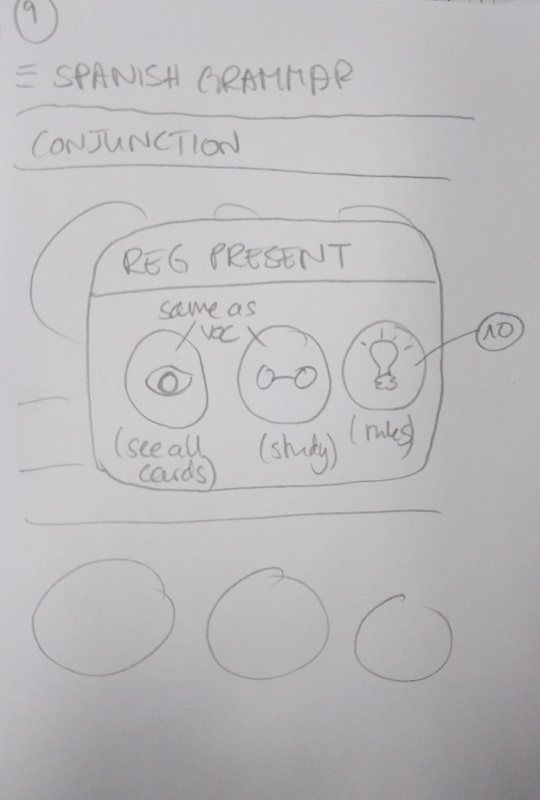 9
SPANISH GRAMMAR
CONJUNCTION
REG PRESENT
same as
voc
10
(see all
cards)
(study)
(rules)